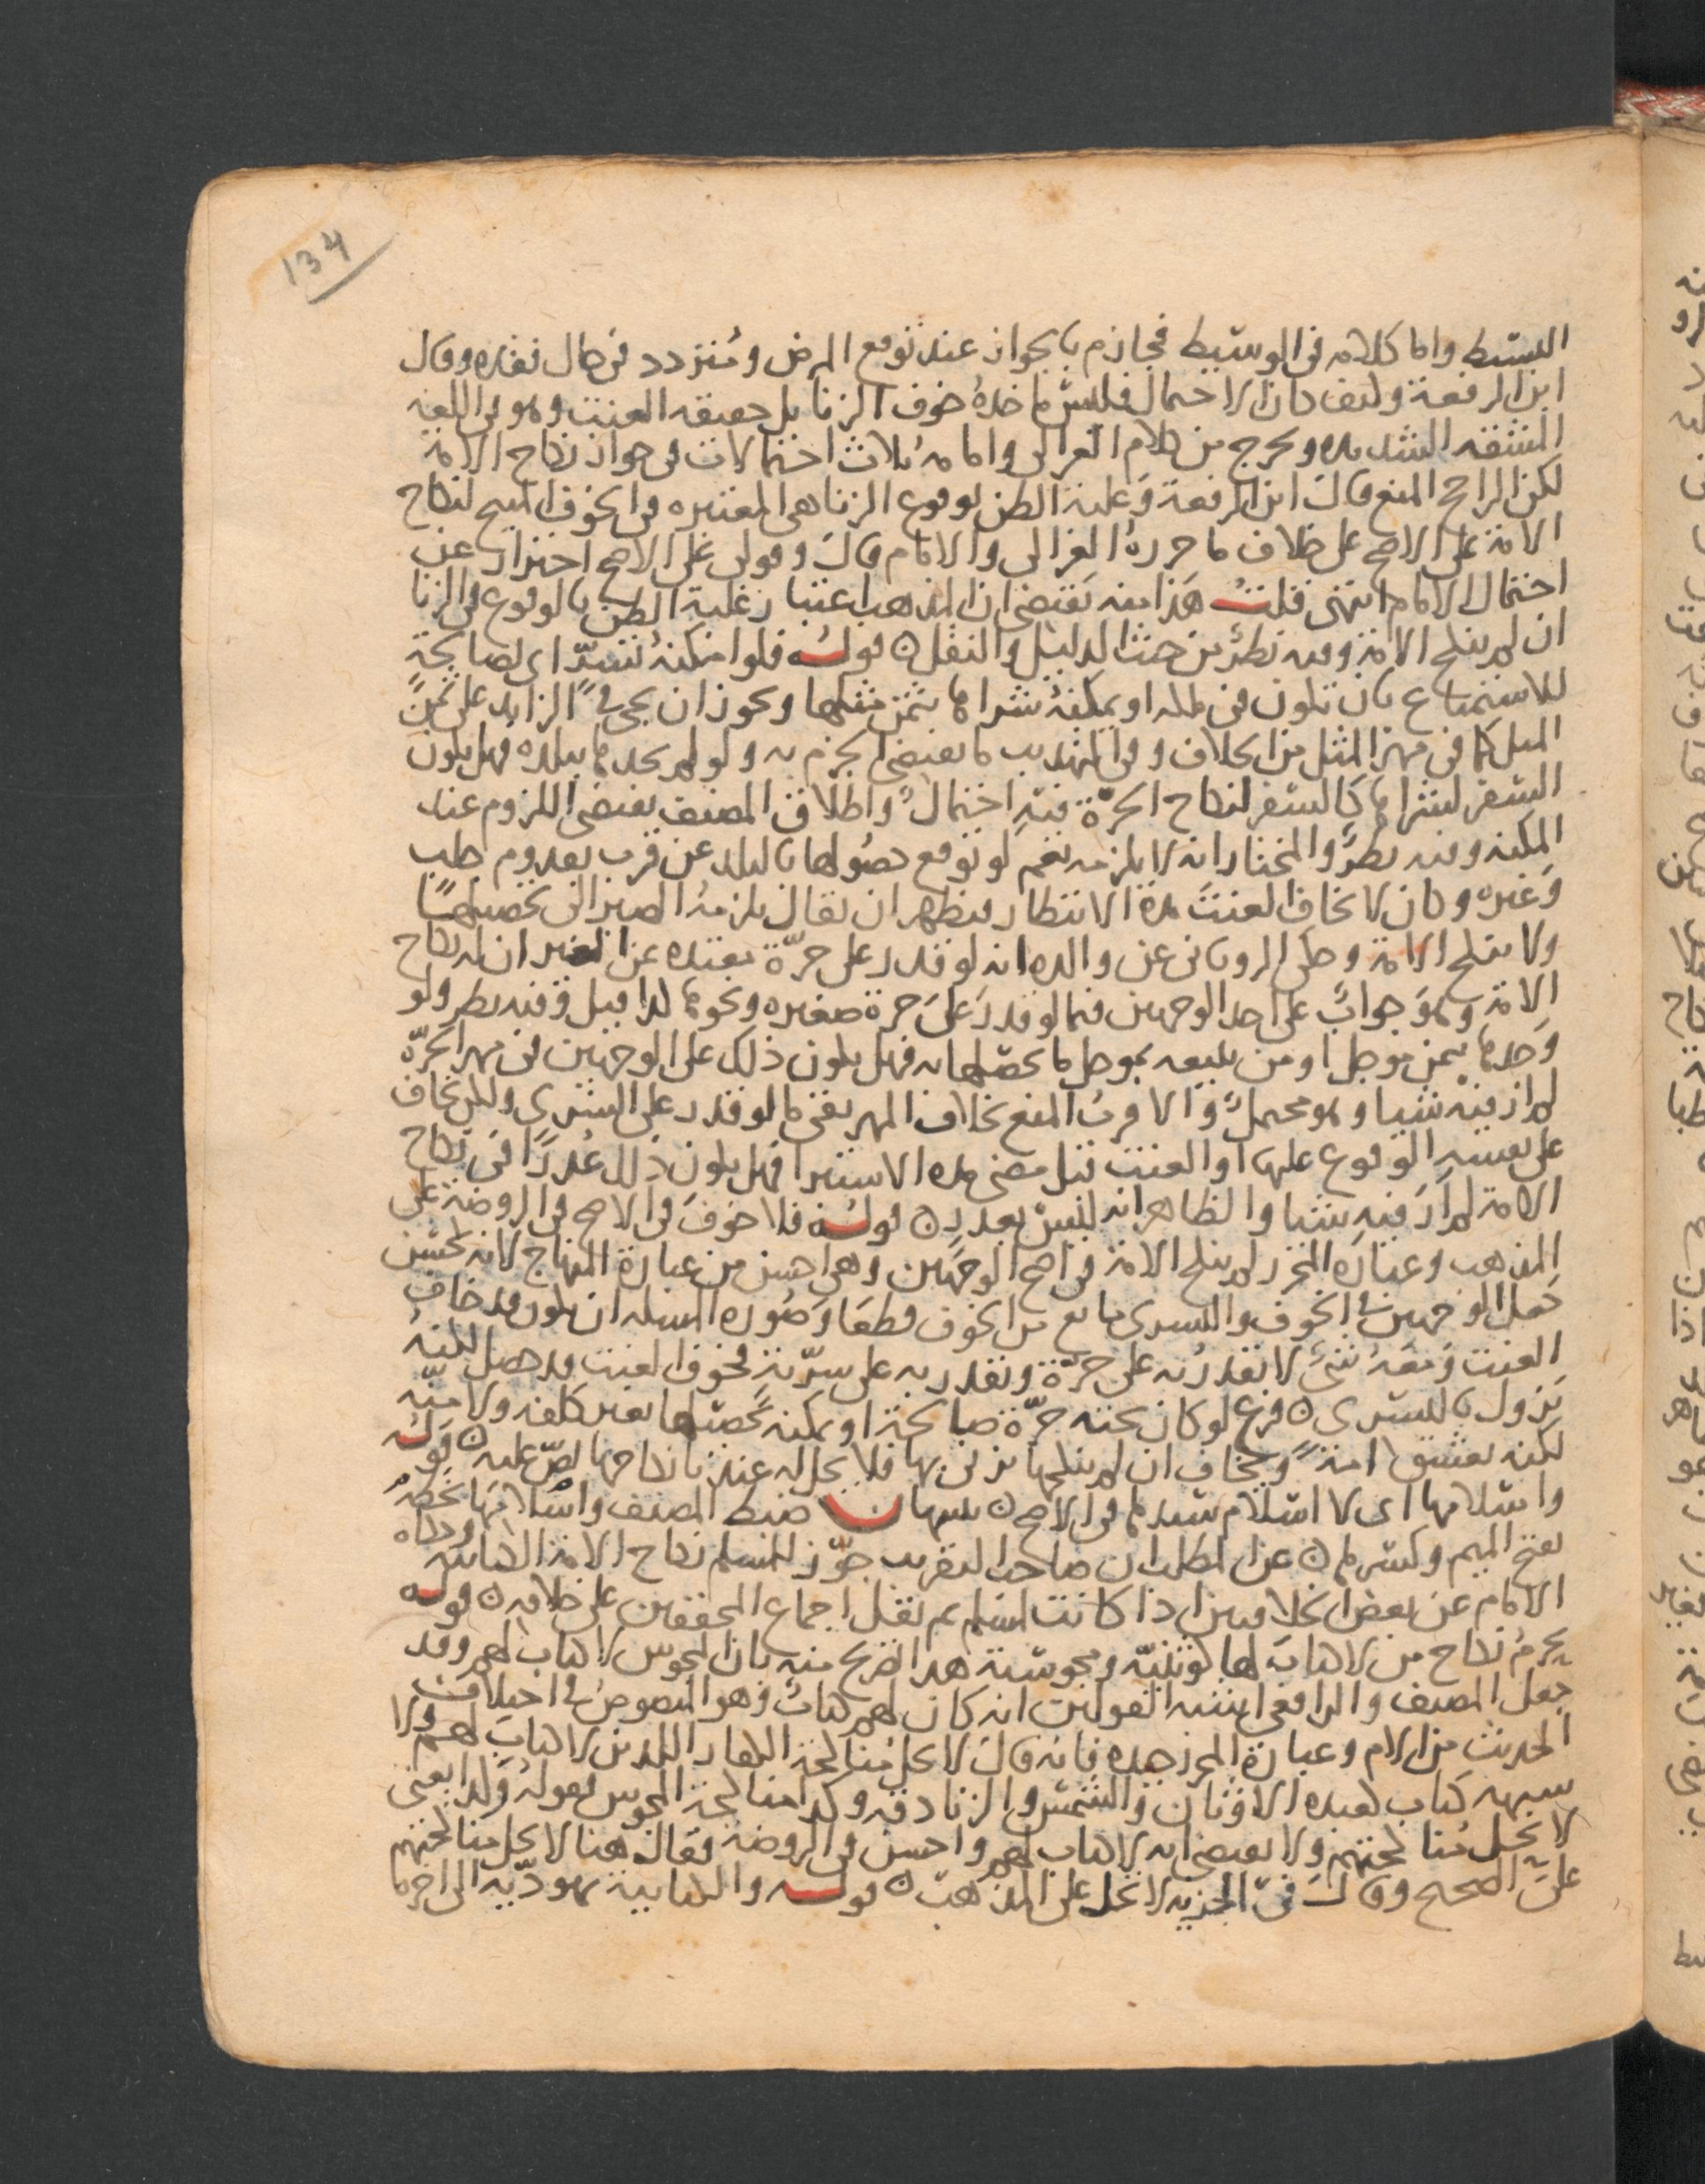 134
البسيط واما كلامه في الوسيط فجازم بالجواز عند توقع المرض ومتردد في حال نفاره وقال
ابن الرفعة وكيف كان الاحتمال فليس ماخذه خوف الزنا بل حقيقه العنت وهو في اللغه
المشقه الشديده ويخرج من كلام الغزالي وامامه ثلاث احتمالات في جواز نكاح الامة
لكن الراجح المنع قال ابن الرفعة وغلبة الظن لوقوع الزنا هي المعتبره في الخوف المبيح لنكاح
الامة على الاصح على خلاف ما حرره الغزالي والامام قال وقولي على الاصح احتراز عن
احتمال الامام انتهى قلت هذا منه يقتضي ان المذهب اعتبار غلبة الظن بالوقوع في الزنا
ان لم ينكح الامة وفيه نظر من حيث الدليل والنقل ن قوله فلو امكنه تسر اي بصالحة
للاستمتاع بان تكون في ملكه او يمكنه شراها بثمن مثلها ويجوز ان يجي في الزايد على ثمن
المثل كما في مهر المثل من الخلاف وفي التهذيب ما يقتضي الجزم به ولو لم يجدها ببلده فهل يكون
السفر لشراها كالسفر لنكاح الحرة فيه احتمال واطلاق المصنف يقتضي اللزوم عند
المكنه وفيه نظر والمختار انه لا يلزمه نعم لو توقع حصولها بالبلد عن قرب بقدوم جلب
وغيره وكان لا يخاف العنت مدة الانتظار فيظهر ان يقال يلزمه الصبر الى تحصيلها
ولا ينكح الامة وحكى الروياني عن والده انه لو قدر على حرة بعيده عن البلد ان له نكاح
الامة وهو جواب على احد الوجهين فيما لو قدر على حرة صغيره ونحوها كذا قيل وفيه نظر ولو
وجدها بثمن موجل او من يبيعه بموجل ما يحصلها به فهل يكون ذلك على الوجهين في مهر الحرة
لم ار فيه شيا وهو محتمل والاقرب المنع بخلاف المهر بقي ما لو قدر على التسري ولكن يخاف
على نفسه الوقوع عليها او العنت قبل مضي مدة الاستبرا فهل يكون ذلك عذرا في نكاح
الامة لم ار فيه شيا والظاهر انه ليس بعذر ن قوله فلا خوف في الاصح في الروضة على
المذهب وعبارة المحرر لم ينكح الامة في اصح الوجهين وهي احسن من عبارة المنهاج لانه لا يحسن
جعل الوجهين في الخوف والتسري مانع من الخوف قطعا وصورة المسله ان يكون قد خاف
العنت ومعه شي لا يقدر به على حرة ويقدر به على سرية فخوف العنت قد حصل لكنه
يزول بالتسري ن فرع لو كان تحته حرة صالحة او يمكنه تحصيلها بغير كلفه ولا منه
لكنه يعشق امة ويخاف ان لم ينكحها يزني بها فلا يحل له عندنا نكاحها نص عليه ن قوله
واسلامها اى لا اسلام سيدها في الاصح ن تنبيهان ضبط المصنف واسلامها بخطه
بفتح الميم وكسرها ن عن المطلب ان صاحب التقريب جوز للمسلم نكاح الامة الكتابية وحكاه
الامام عن بعض الخلافيين اذا كانت لمسلم ثم نقل اجماع المحققين على خلافه ن قوله
يحرم نكاح من لا كتاب لها كوثنية ومجوسية هذا تصريح منه بان المجوس لا كتاب لهم وقد
جعل المصنف والرافعي اشبه القولين انه كان لهم كتاب وهو المنصوص في اختلاف
الحديث من الام وعبارة المحرر جيده فانه قال لا يحل مناكحة الكفار الذين لا كتاب لهم ولا
شبهه كتاب كعبدة الاوثان والشمس والزنادقه وكذا مناكحة المجوس فقوله وكذا يعني
لا يحل مناكحتهم ولا يقتضي انه لا كتاب لهم واحسن في الروضة فقال هنا لا يحل مناكحتهم
على الصحيح وقال في الجزيه لا تحل على المذهب ن قوله والكتابية يهودية الى اخرها